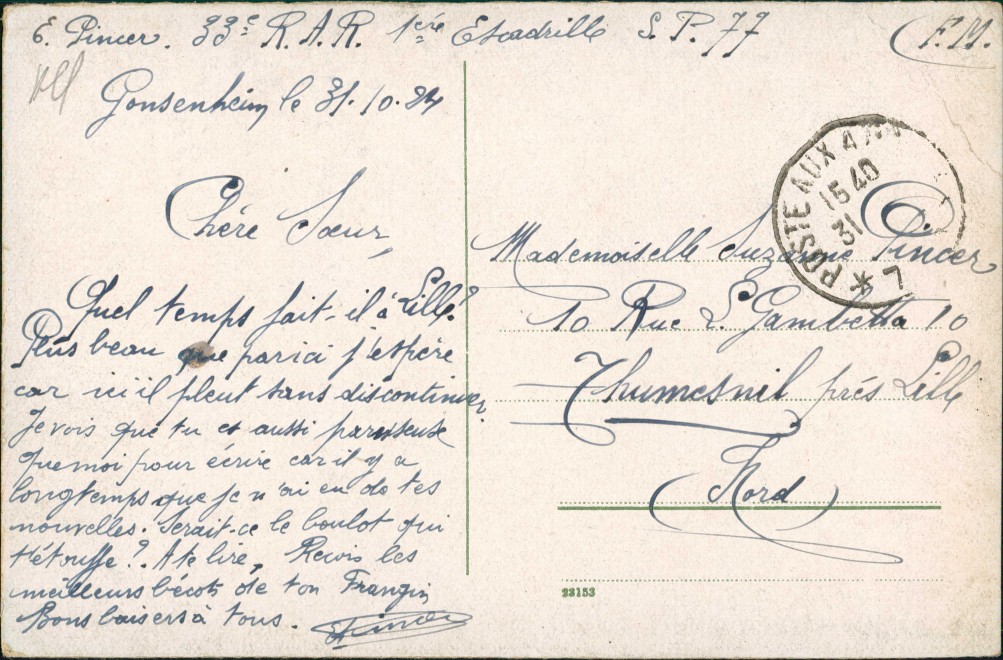 E. Pincer. 33e R.A.R. 1ère Escadrille S.P. 77 (F.M.
Gonsenheim le 31.10.24
Chère Sœur,
Quel temps fait-il à Lille?
Plus beau que par ici j'espère
car ici il pleut sans discontinuer
Je vois que tu es aussi paresseuse
que moi pour écrire car il y a
longtemps que je n'ai eu de tes
nouvelles. Serait-ce le boulot qui
t'étouffe? A te lire, Reçois les
meilleurs bécots de ton Frangin
Bons baisers à tous.
EPincer
POSTE AUX ARM
15 40
31
* 7
Mademoiselle Suzanne Pincer
10 Rue L. Gambetta 10
Thumesnil près Lille
(Nord)
23153